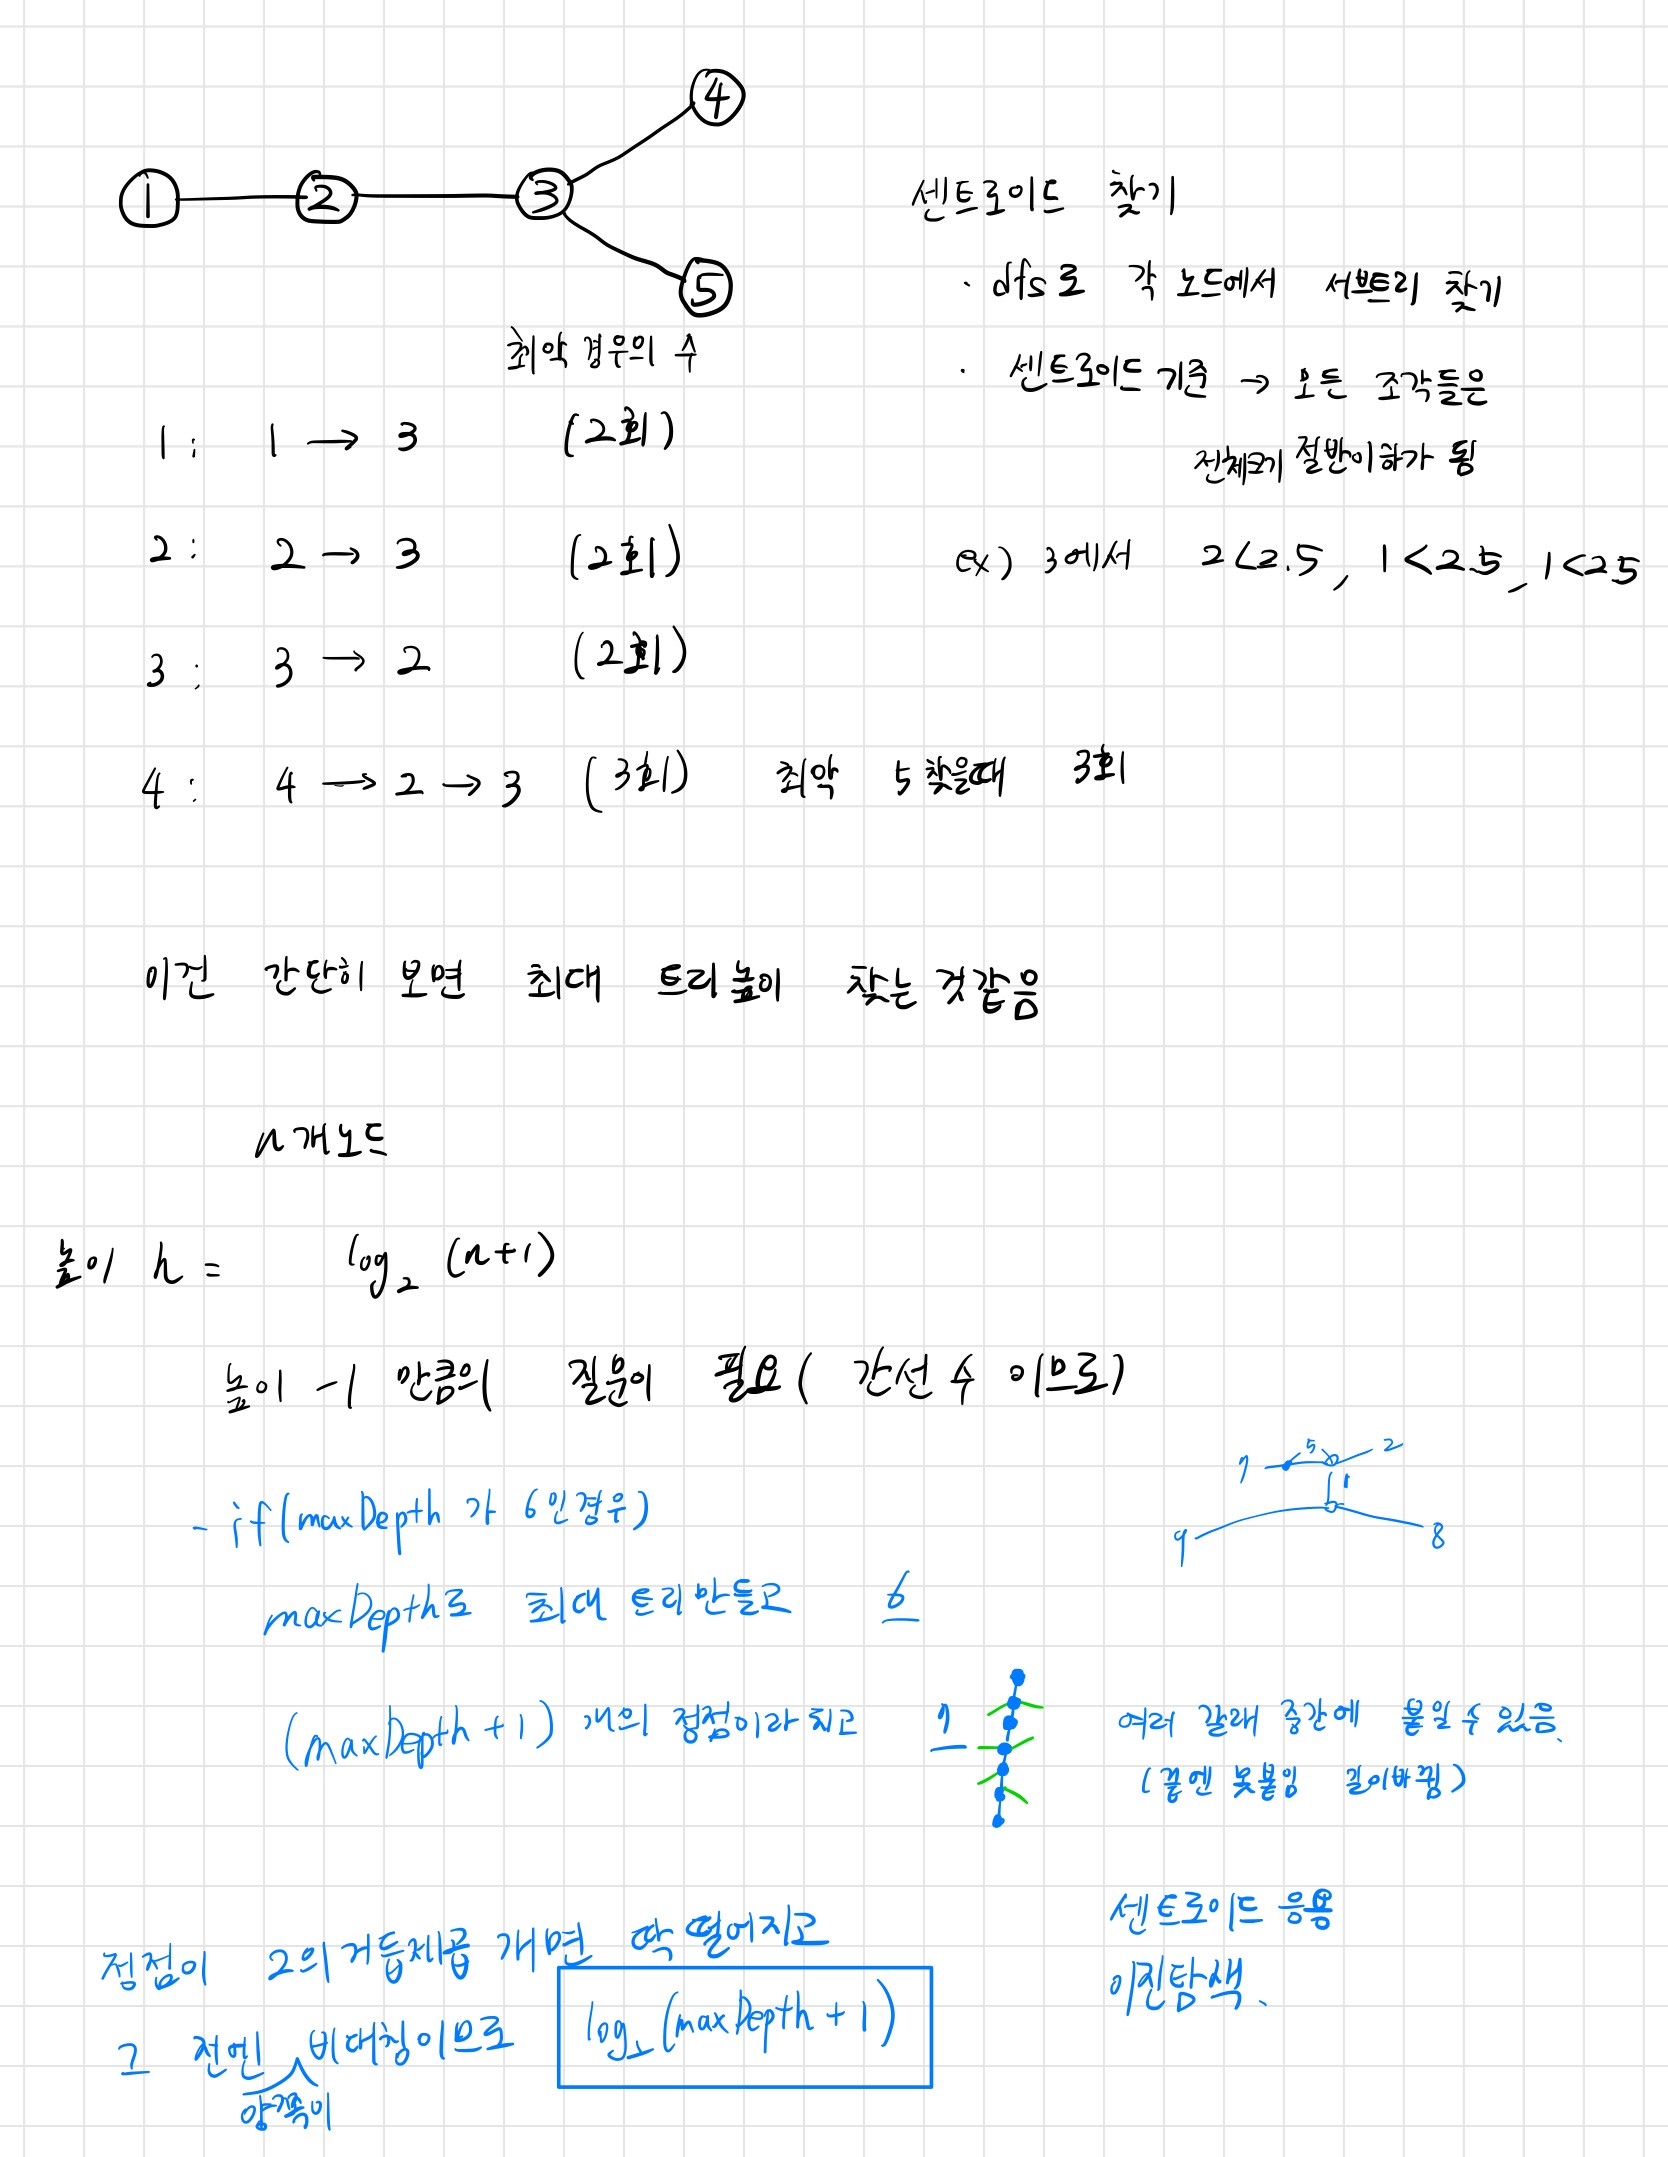 1 2 3 4 5
최악 경우의 수
1: 1 → 3 (2회)
2: 2 → 3 (2회)
3: 3 → 2 (2회)
4: 4 → 2 → 3 (3회) 최악 5 찾을때 3회
센트로이드 찾기
· dfs로 각 노드에서 서브트리 찾기
· 센트로이드 기준 → 모든 조각들은
전체크기 절반이하가 됨
ex) 3에서 2<2.5, 1<2.5, 1<2.5
이건 간단히 보면 최대 트리 높이 찾는 것같음
n개노드
높이 h = log₂ (n+1)
높이 -1 만큼의 질문이 필요 ( 간선 수 이므로)
- if(maxDepth 가 6인경우)
7 5 2
1
9 8
maxDepth로 최대 트리만들고 6
(maxDepth + 1) 개의 정점이라 치고 7
여러 갈래 중간에 붙일 수 있음.
(끝엔 못붙임 길이바뀜)
센트로이드 응용
이진탐색.
정점이 2의 거듭제곱 개면 딱 떨어지고
그 전엔 양쪽이 비대칭이므로 log₂(maxDepth + 1)